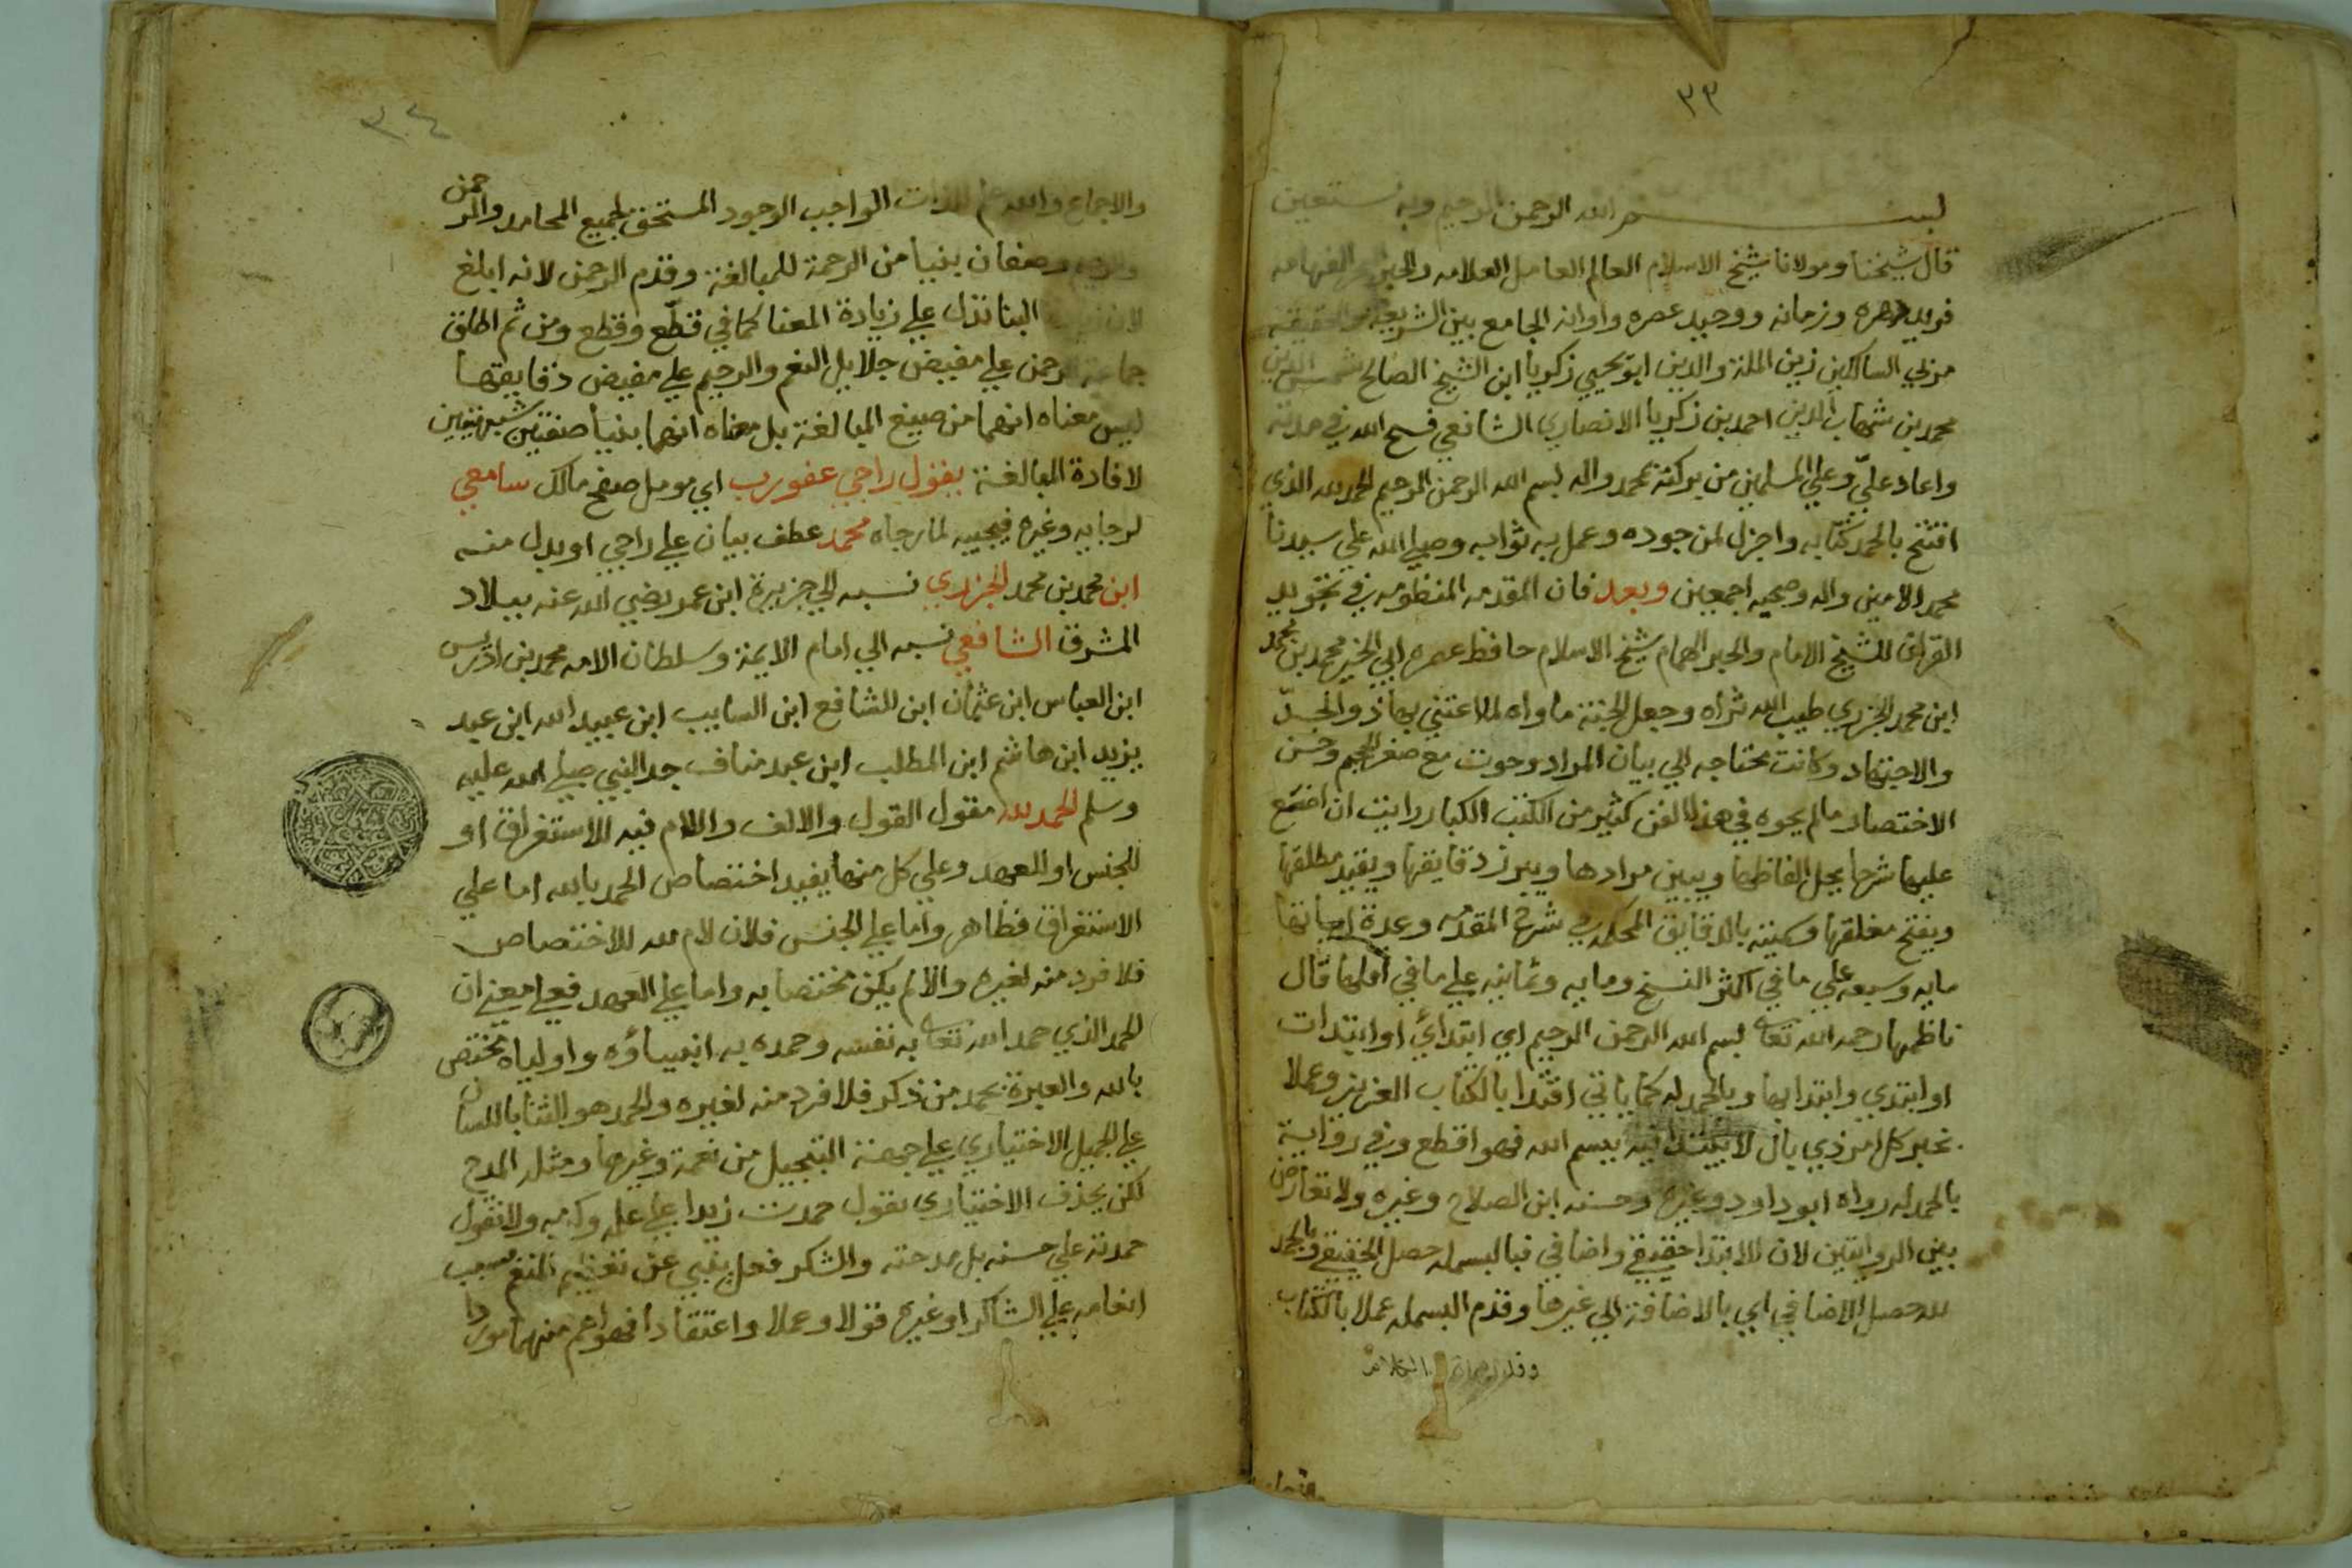 ٣٣
بسم الله الرحمن الرحيم وبه نستعين
قال شيخنا ومولانا شيخ الاسلام العالم العامل العلامه والحبر الفهامه
فريد دهره وزمانه ووحيد عصره واوانه الجامع بين الشريعة والحقيقة
مربي السالكين زين الملة والدين ابو يحيي زكريا ابن الشيخ الصالح شمس الدين
محمد بن شهاب الدين احمد بن زكريا الانصاري الشافعي فسح الله في مدته
واعاد عليّ وعلي المسلمين من بركته بمحمد واله بسم الله الرحمن الرحيم الحمد لله الذي
افتتح بالحمد كتابه واجزل لمن جوده وعمل به ثوابه وصلي الله علي سيدنا
محمد الامين واله وصحبه اجمعين وبعد فان المقدمه المنظومه في تجويد
القران للشيخ الامام والحبر الهمام شيخ الاسلام حافظ عصره ابي الخير محمد بن محمد
ابن محمد الجزري طيب الله ثراه وجعل الجنة ماواه لما اعتني بها ذوو الجدّ
والاجتهاد وكانت محتاجه الي بيان المراد وحوت مع صغر الحجم وحسن
الاختصار ما لم يحوه في هذا الفن كثير من الكتب الكبار رايت ان اضع
عليها شرحا يحل الفاظها ويبين مرادها ويبرز دقايقها ويقيد مطلقها
ويفتح مغلقها وسميته بالدقايق المحكمه في شرح المقدمه وعدة ابياتها
مايه وسبعه علي ما في اكثر النسخ ومايه وثمانيه علي ما في اقلها قال
ناظمها رحمه الله تعالى بسم الله الرحمن الرحيم اي ابتدائي او ابتدات
او ابتدي وابتدا بها وبالحمدله كما ياتي اقتدا بالكتاب العزيز وعملا
بخبر كل امر ذي بال لا يبتدا فيه ببسم الله فهو اقطع وفي رواية
بالحمد لله رواه ابو داود وغيره وحسنه ابن الصلاح وغيره ولا تعارض
بين الروايتين لان الابتدا حقيقي واضافي فبالبسمله حصل الحقيقي وبالحمد
لله حصل الاضافي اي بالاضافة الي غيرها وقدم البسمله عملا بالكتاب
٣٤
والاجماع والله علم للذات الواجب الوجود المستحق لجميع المحامد والرحمن
والرحيم صفتان بنيا من الرحمة للمبالغة وقدم الرحمن لانه ابلغ
البنا تدل علي زيادة المعنا كما في قطّع وقطع ومن ثم اطلق
جماعة الرحمن علي مفيض جلايل النعم والرحيم علي مفيض دقايقها
ليس معناه انهما من صيغ المبالغة بل معناه انهما بنيا صفتين شبيهتين
لافادة المبالغة يقول راجي عفو رب اي مومل صفح مالك سامعي
لرجايه وغيره فيجيبه لما رجاه محمد عطف بيان علي راجي او بدل منه
ابن محمد بن محمد الجزري نسبه الي جزيرة ابن عمر رضي الله عنه ببلاد
المشرق الشافعي نسبه الي امام الايمة وسلطان الامه محمد بن ادريس
ابن العباس ابن عثمان ابن الشافع ابن السايب ابن عبيد الله ابن عبد
يزيد ابن هاشم ابن المطلب ابن عبد مناف جد النبي صلي الله عليه
وسلم الحمد لله مقول القول والالف واللام فيه للاستغراق او
للجنس او للعهد وعلي كل منها يفيد اختصاص الحمد بالله اما علي
الاستغراق فظاهر واما علي الجنس فلان لام لله للاختصاص
فلا فرد منه لغيره والا لم يكن مختصا به واما علي العهد فعلي معني ان
الحمد الذي حمد الله تعالى به نفسه وحمده به انبياؤه واولياه مختص
بالله والعبرة بحمد من ذكر فلا فرد منه لغيره والحمد هو الثنا باللسان
علي الجميل الاختياري علي جهة التبجيل من نعمة وغيرها ومثله المدح
لكن بحذف الاختياري تقول حمدت زيدا علي علمه وكرمه ولا تقول
حمدته علي حسنه بل مدحته والشكر فعل ينبي عن تعظيم المنعم بسبب
انعامه علي الشاكر او غيره قولا وعملا واعتقادا فهو اعم منهما موردا